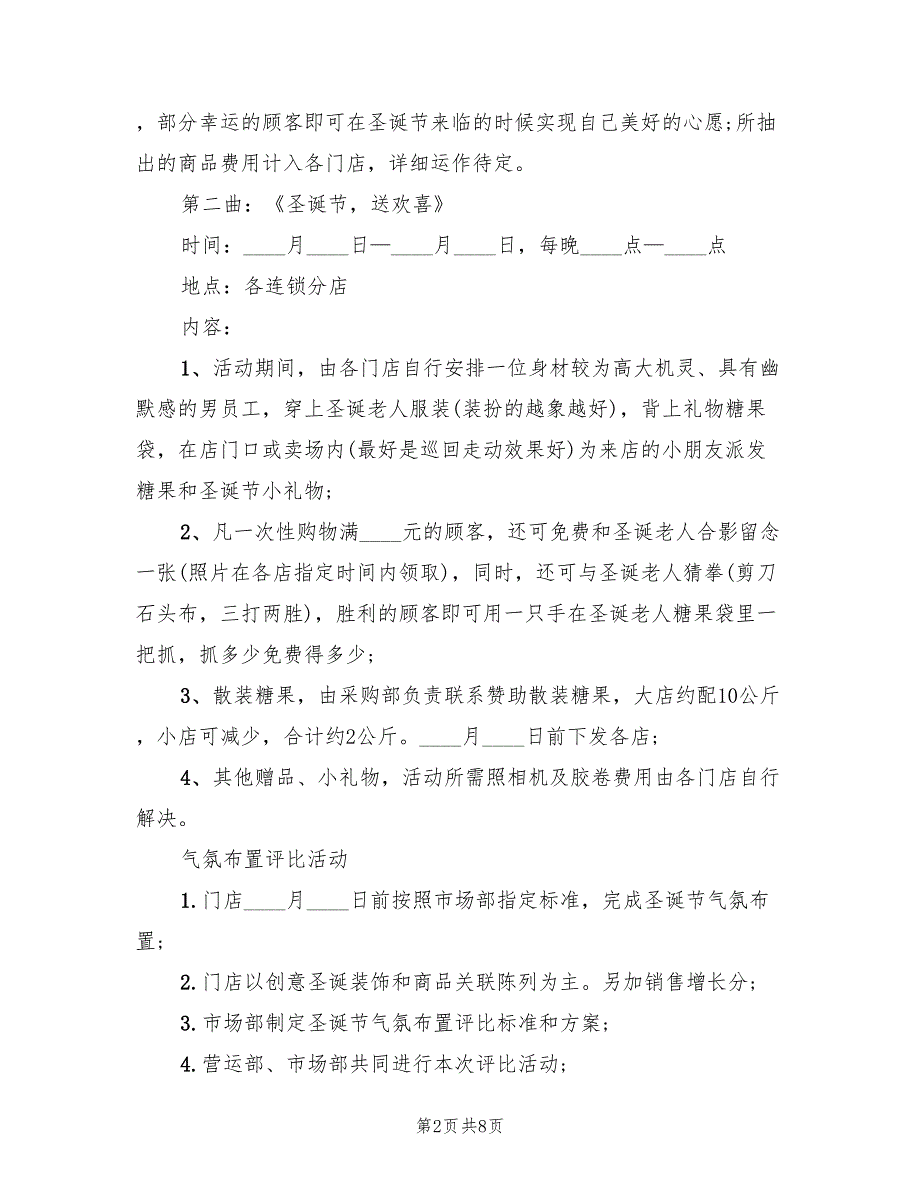 ，部分幸运的顾客即可在圣诞节来临的时候实现自己美好的心愿;所抽
出的商品费用计入各门店，详细运作待定。
第二曲：《圣诞节，送欢喜》
时间：____月____日—____月____日，每晚____点—____点
地点：各连锁分店
内容：
1、活动期间，由各门店自行安排一位身材较为高大机灵、具有幽
默感的男员工，穿上圣诞老人服装(装扮的越象越好)，背上礼物糖果
袋，在店门口或卖场内(最好是巡回走动效果好)为来店的小朋友派发
糖果和圣诞节小礼物;
2、凡一次性购物满____元的顾客，还可免费和圣诞老人合影留念
一张(照片在各店指定时间内领取)，同时，还可与圣诞老人猜拳(剪刀
石头布，三打两胜)，胜利的顾客即可用一只手在圣诞老人糖果袋里一
把抓，抓多少免费得多少;
3、散装糖果，由采购部负责联系赞助散装糖果，大店约配10公斤
，小店可减少，合计约2公斤。____月____日前下发各店;
4、其他赠品、小礼物，活动所需照相机及胶卷费用由各门店自行
解决。
气氛布置评比活动
1.门店____月____日前按照市场部指定标准，完成圣诞节气氛布
置;
2.门店以创意圣诞装饰和商品关联陈列为主。另加销售增长分;
3.市场部制定圣诞节气氛布置评比标准和方案;
4.营运部、市场部共同进行本次评比活动;
第2页 共8页